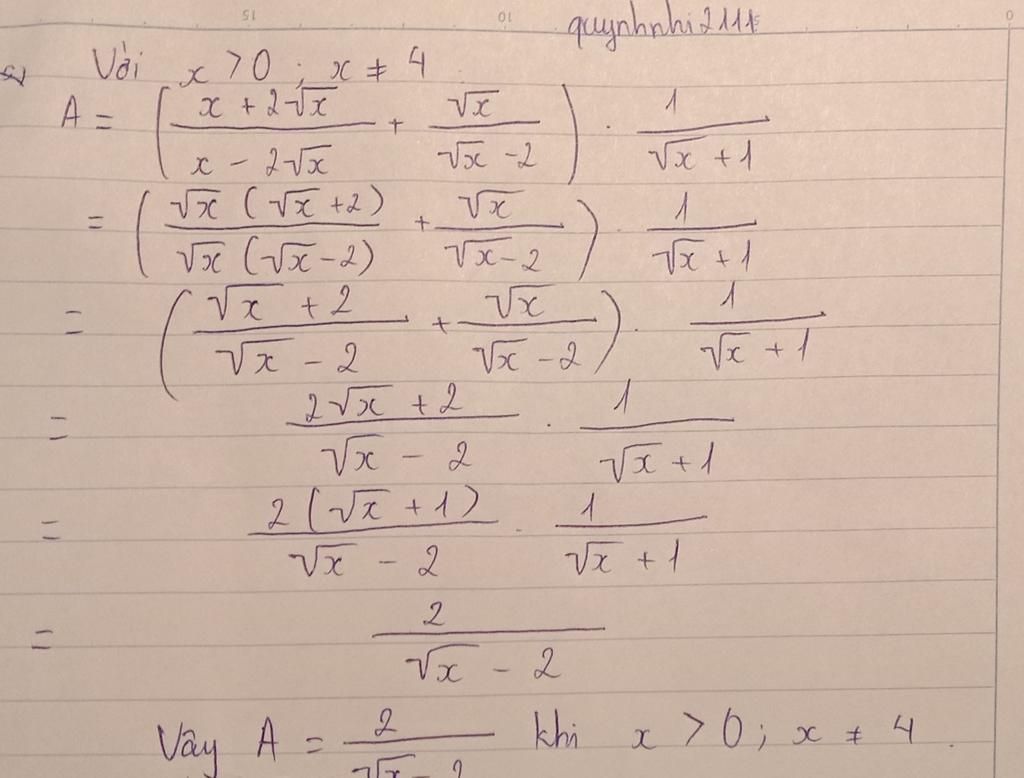 quynhnhi2111
Với x > 0 ; x ≠ 4
A = ( (x + 2√x)/(x - 2√x) + √x/(√x - 2) ) . 1/(√x + 1)
= ( √x (√x + 2)/√x (√x - 2) + √x/(√x - 2) ) . 1/(√x + 1)
= ( (√x + 2)/(√x - 2) + √x/(√x - 2) ) . 1/(√x + 1)
= (2√x + 2)/(√x - 2) . 1/(√x + 1)
= 2 (√x + 1)/(√x - 2) . 1/(√x + 1)
= 2/(√x - 2)
Vây A = 2/(√x - 2) khi x > 0 ; x ≠ 4 .